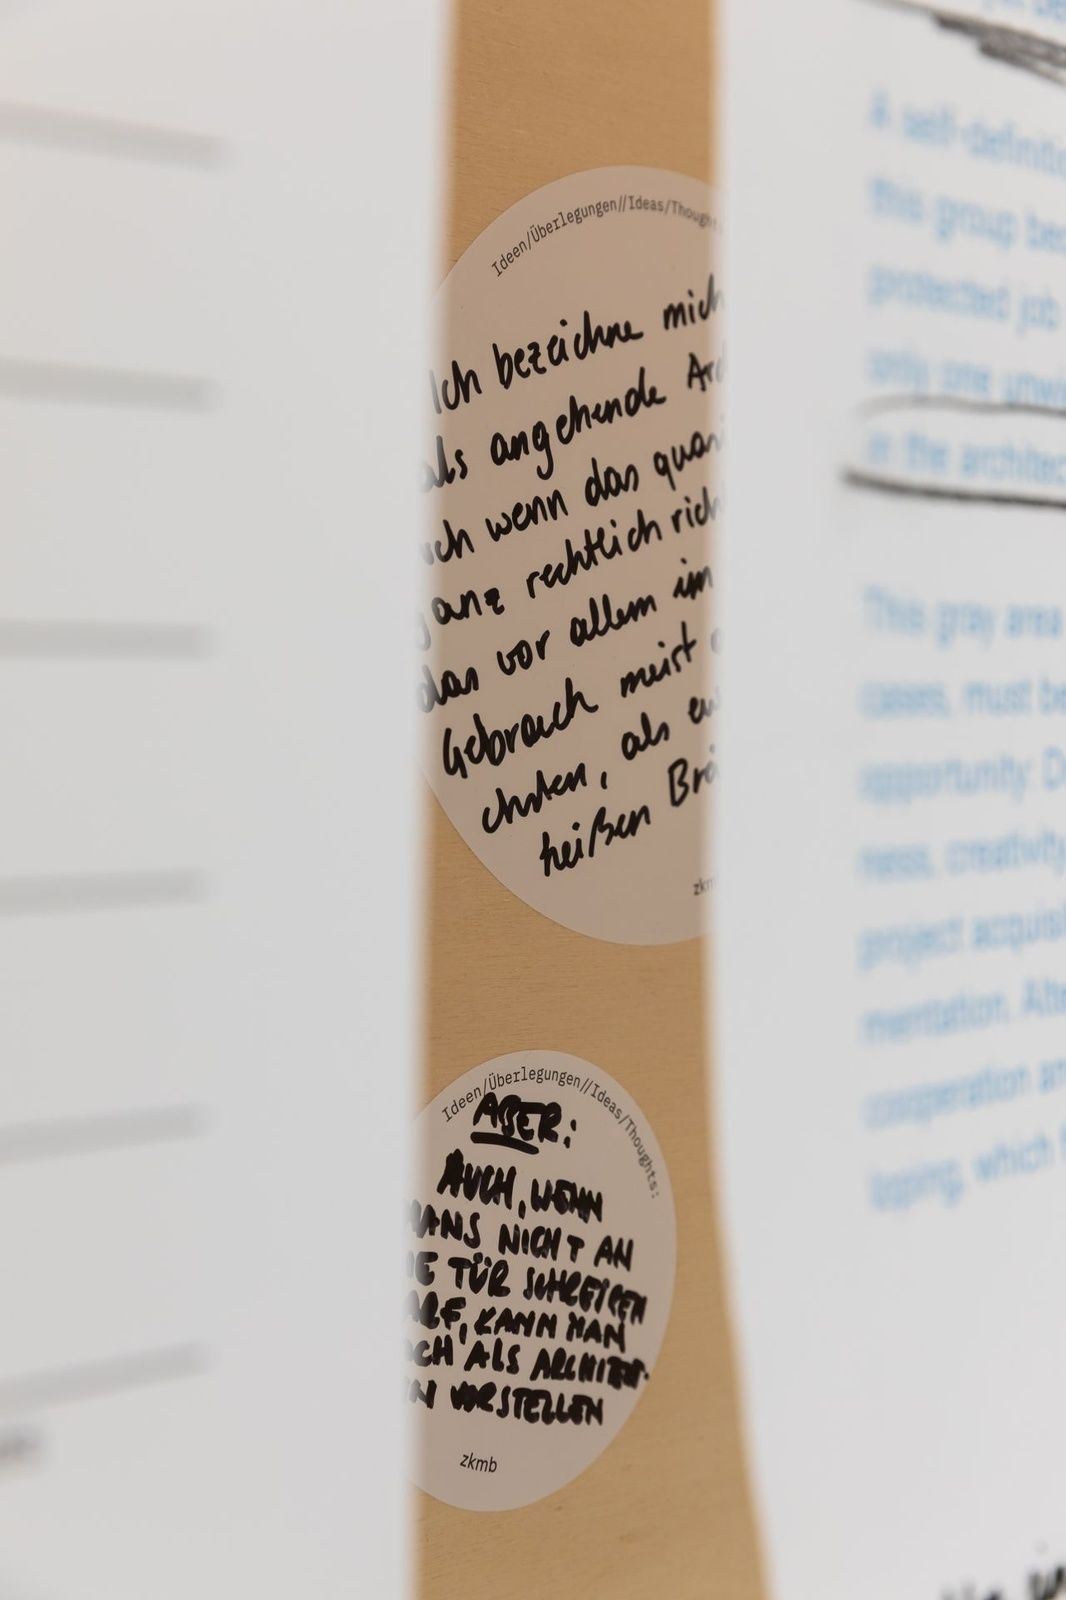 Ideen/Überlegungen//Ideas/Though
Ich bezeichne mich
als angehende Arc
uch wenn das quasi
ganz rechtlich rich
das vor allem im
Gebrauch meist
chsten, als
heißen Brä
zkm
Ideen/Überlegungen//Ideas/Thoughts:
ABER:
AUCH, WENN
MANS NICHT AN
IE TÜR SCHREIBEN
ARF, KANN MAN
OCH ALS ARCHITEKT-
IN VORSTELLEN
zkmb
A self-definitio
this group bec
protected job
only one unwi
in the architec
This gray area
cases, must be
opportunity: D
ness, creativity
project acquisi
mentation. Alte
cooperation an
loping, which f